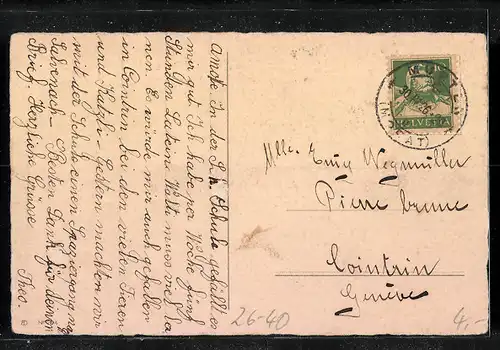 Ande. In der S.k. Schule gefällt es
mir gut. Ich habe per Woche fünf
Stunden Latein. Wälti muss viel la
nen. Es würde mir auch gefallen
in Cointrin bei den vielen Ferien
und Kätzli. Gestern machten wir
mit der Schule einen Spaziergang n
Subenach. Besten Dank für Deinen
Brief. Herzliche Grüsse
Theo.
HELVETIA
Mlle. Erug Wegmüller
Pierre brune
Cointrin
Genève
26-40
4,-